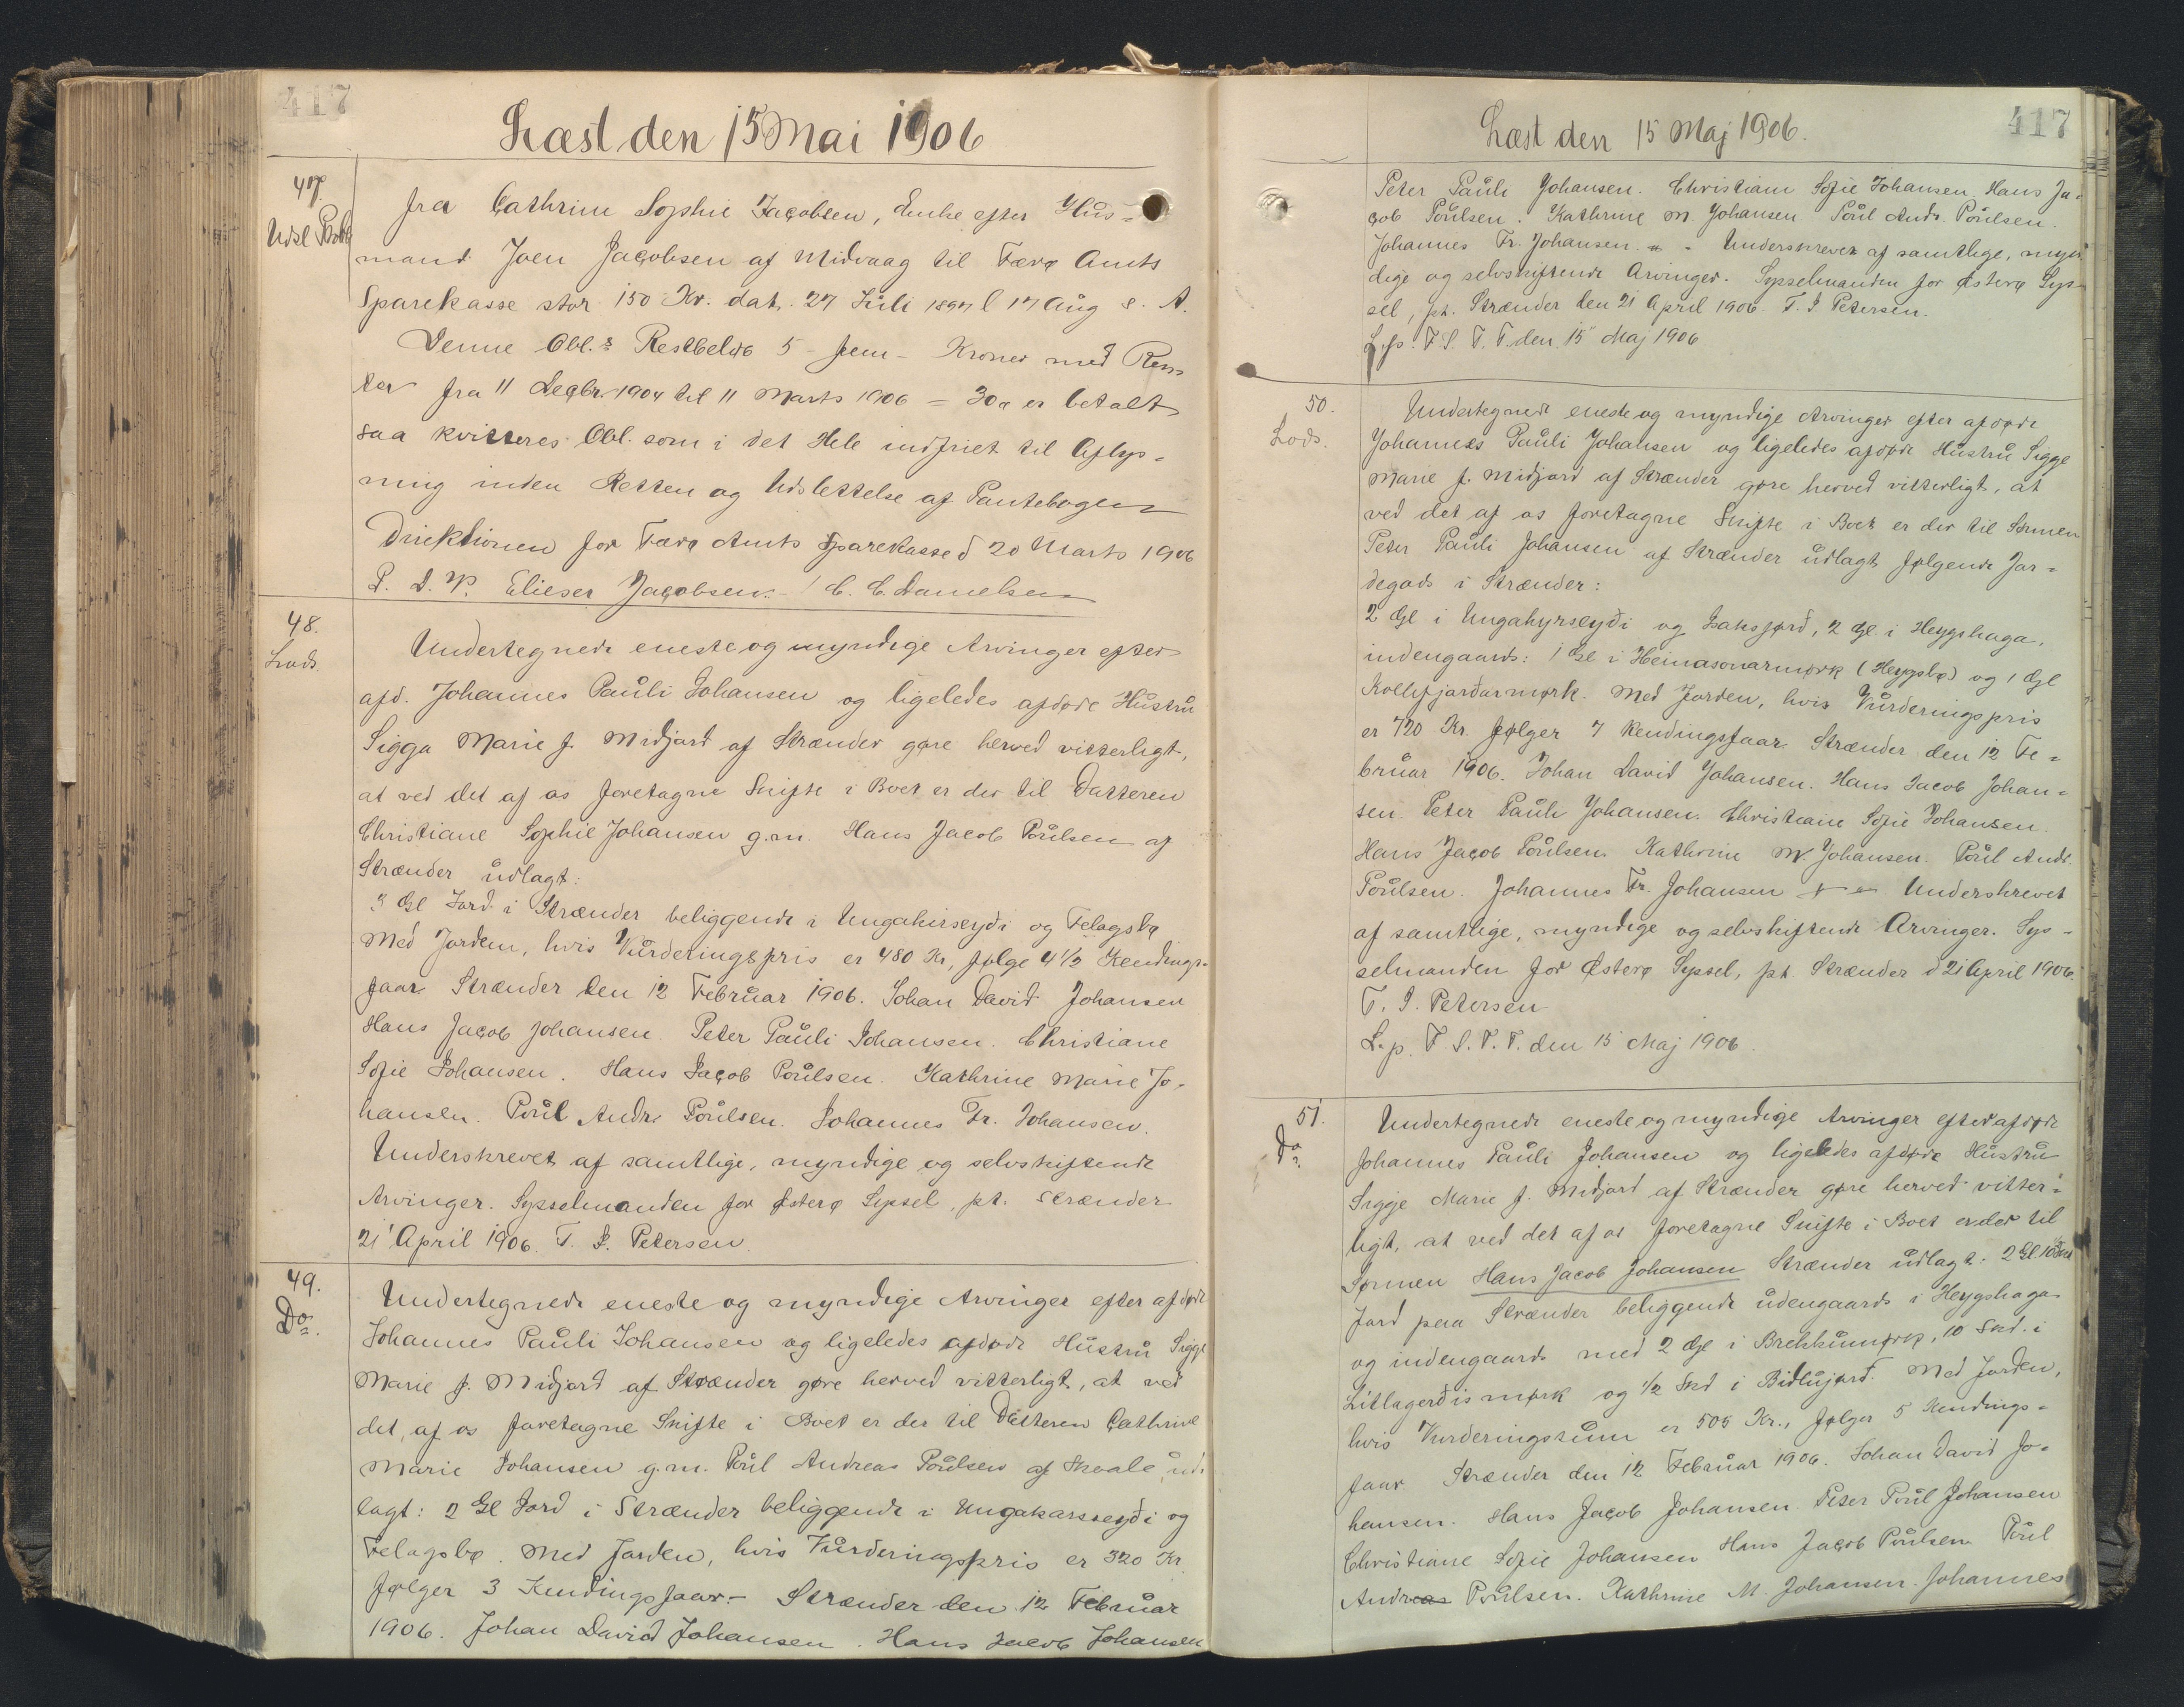 417
Læst den 15 Mai 1906
47.
Udsl
fra Cathrine Sophie Jacobsen, Enke efter Hus-
mand Joen Jacobsen af Midvaag til Færø Amts
Sparekasse stor 150 Kr. dat. 27 Juli 1897 l 17 Aug s. A.
Denne Obl.s Restbeløb 5 - fem - Kroner med Ren-
ter fra 11 Decbr. 1904 til 11 Marts 1906 = 30 ø er betalt
saa kvitteres Obl. som i det Hele indfriet til Aflys-
ning inden Retten og Udslettelse af Pantebogen
Direktionen for Færø Amts Sparekasse d 20 Marts 1906
P. D. V. Elieser Jacobsen. / C. C. Danielsen
48.
Lods.
Undertegnede eneste og myndige Arvinger efter
afd. Johannes Pauli Johansen og ligeledes afdøde Hustru
Sigga Marie f. Midjord af Strænder gøre herved vitterligt,
at ved det af os foretagne Skifte i Boet er der til Datteren
Christiane Sophie Johansen g.m. Hans Jacob Poulsen af
Strænder udlagt:
3 Gl Jord i Strænder beliggende i Ungahirseydi og Felagsbø
Med Jorden, hvis Vurderingspris er 480 Kr, følge 4 1/2 Kendings-
faar. Strænder den 12 Februar 1906. Johan David Johansen
Hans Jacob Johansen. Peter Pauli Johansen. Christiane
Sofie Johansen. Hans Jacob Poulsen. Kathrine Marie Jo-
hansen. Poul Andr. Poulsen. Johannes Fr. Johansen.
Underskrevet af samtlige, myndige og selvskiftende
Arvinger. Sysselmanden for Østerø Syssel, pt. Strænder
21 April 1906. T. J. Petersen.
49.
Do.
Undertegnede eneste og myndige Arvinger efter afdøde
Johannes Pauli Johansen og ligeledes afdøde Hustru Sigge
Marie f. Midjord af Strænder gøre herved vitterligt, at ved
det, af os foretagne Skifte i Boet er der til Datteren Cathrine
Marie Johansen g.m. Poul Andreas Poulsen af Skaale ud-
lagt: 2 Gl Jord i Strænder beliggende i Ungakarsseydi og
Felagsbø. Med Jorden, hvis Vurderingspris er 320 Kr.
følger 3 Kendingsfaar. - Strænder den 12 Februar
1906. Johan David Johansen. Hans Jacob Johansen
417
Læst den 15 Maj 1906.
Peter Pauli Johansen. Christiane Sofie Johansen. Hans Ja-
cob Poulsen. Kathrine M. Johansen Poul Andr. Poulsen.
Johannes Fr. Johansen. - Underskrevet af samtlige, myn-
dige og selvskiftende Arvinger. Sysselmanden for Østerø Sys-
sel, pt. Strænder den 21 April 1906. T. J. Petersen.
L. p. F. S. T. T. den 15 Maj 1906
50.
Lods.
Undertegnede eneste og myndige Arvinger efter afdøde
Johannes Pauli Johansen og ligeledes afdøde Hustru Sigge
Marie f. Midjord af Strænder gøre herved vitterligt, at
ved det af os foretagne Skifte i Boet er der til Sønnen
Peter Pauli Johansen af Strænder udlagt følgende Jor-
degods i Strænder:
2 Gl i Ungahyrseyði og Isaksjørd, 2 Gl. i Heygshaga,
indengaards: 1 Gl i Heimasonarmørk (Heygsbø) og 1 Gl
Kollefjardarmørk. Med Jorden, hvis Vurderingspris
er 720 Kr. følger 7 Kendingsfaar. Strænder den 12 Fe-
bruar 1906. Johan David Johansen. Hans Jacob Johan-
sen. Peter Pauli Johansen. Christiane Sofie Johansen.
Hans Jacob Poulsen. Kathrine M. Johansen. Poul Andr.
Poulsen. Johannes Fr. Johansen - Underskrevet
af samtlige, myndige og selvskiftende Arvinger. Sys-
selmanden for Østerø Syssel, pt. Strænder d 21 April 1906.
T. J. Petersen
L. p. F. S. T. T. den 15 Maj 1906.
51.
Do.
Undertegnede eneste og myndige Arvinger efter afdøde
Johannes Pauli Johansen og ligeledes afdøde Hustru
Sigge Marie f. Midjord af Strænder gøre herved vitter-
ligt, at ved det af os foretagne Skifte i Boet er der til
Sønnen Hans Jacob Johansen Strænder udlagt: 2 Gl
Jord paa Strænder beliggende udengaards i Heygshaga
og indengaards med 2 Gl i Brekkumørk, 10 Skd. i
Litlagerðismørk og 1/2 Skd i Bidlujørd. Med Jorden,
hvis Vurderingssum er 505 Kr., følger 5 Kendings-
faar Strænder den 12 Februar 1906. Johan David Jo-
hansen. Hans Jacob Johansen. Peter Poul Johansen
Christiane Sofie Johansen Hans Jacob Poulsen. Poul
Andreas Poulsen. Kathrine M. Johansen. Johannes